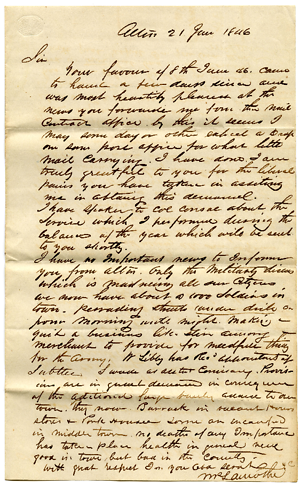 Alton 21 Jan 1846
Sir
Your favour of 8th Jan 46. came
to hand a few days since and
was most heartily pleased at the
news you forwarded me from the mail
Contract office by this it seems I
may some day or other collect a
on some post office for what little
mail carrying I have done I am
truly greatful to you for the liberal
pains you have taken in assisting
me in obtaining this demand.
I have spoken to Col Conor about the
service which I performed during the
balance of the year which will be sent
to you shortly.
I have no Important news to Inform
you from Alton. only the Military
which is all our Citizens
we now have about 1000 Soldiers in
town. streets under drill
from morning until night making
quite a business like stir among the
merchant to provide for needful things
for the Army. W Libby has the appointment of
Sutler I under as Provis
ions are in great demand in consequence
of the additional large family came to our
town. they now Barrack in vacant
stores & some are encamped
in middle town no deaths of any Importance
has taken place health in general now
good in town but bad in the County.
with great respect I am your obt servt